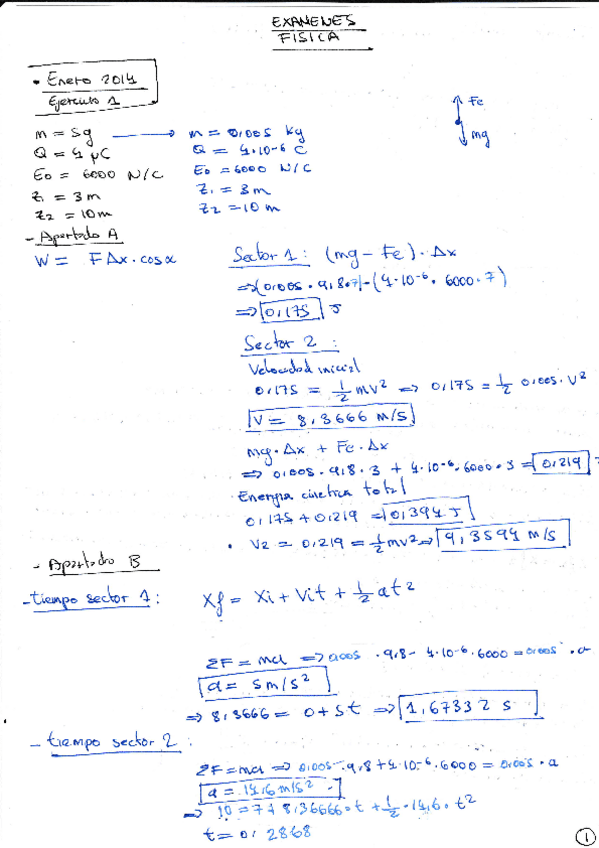 EXAMENES
FISICA
• Enero 2014
Ejercicio 1
m = 5g → m = 0,005 kg
Q = 4 μC Q = 4·10⁻⁶ C
E₀ = 6000 N/C E₀ = 6000 N/C
Z₁ = 3 m Z₁ = 3 m
Z₂ = 10 m Z₂ = 10 m
Fe
mg
- Apartado A
W = F Δx · cosα
Sector 1: (mg - Fe) · Δx
⇒ (0,005 · 9,8·7) - (4·10⁻⁶ · 6000 · 7)
⇒ 0,175 J
Sector 2 :
Velocidad inicial
0,175 = 1/2 mv² ⇒ 0,175 = 1/2 0,005 · v²
V = 8,3666 m/s
mg · Δx + Fe · Δx
⇒ 0,005 · 9,8 · 3 + 4·10⁻⁶ · 6000 · 3 = 0,219 J
Energia cinetica total
0,175 + 0,219 = 0,394 J
• V₂ = 0,219 = 1/2 mv² ⇒ 9,3594 m/s
- Apartado B
- tiempo sector 1 : Xf = Xi + Vit + 1/2 at²
ΣF = ma ⇒ 0,005 · 9,8 - 4·10⁻⁶ · 6000 = 0,005 · a
a = 5 m/s²
⇒ 8,3666 = 0 + 5t ⇒ 1,67332 s
- tiempo sector 2 :
ΣF = ma ⇒ 0,005 · 9,8 + 4·10⁻⁶ · 6000 = 0,005 · a
a = 14,6 m/s² .
⇒ 10 = 7 + 8,36666 · t + 1/2 · 14,6 · t²
t = 0,2868
1